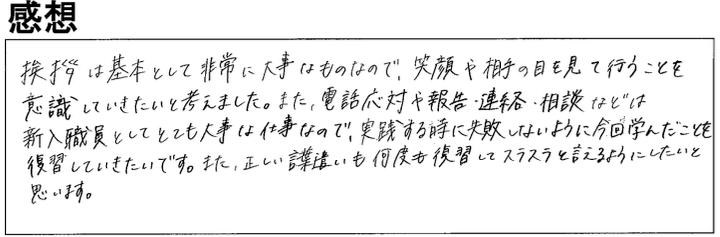 感想
挨拶は基本として非常に大事なものなので、笑顔や相手の目を見て行うことを
意識していきたいと考えました。また、電話応対や報告・連絡・相談などは
新入職員としてとても大事な仕事なので、実践する時に失敗しないように今回学んだことを
復習していきたいです。また、正しい言葉遣いも何度も復習してスラスラと言えるようにしたいと
思います。